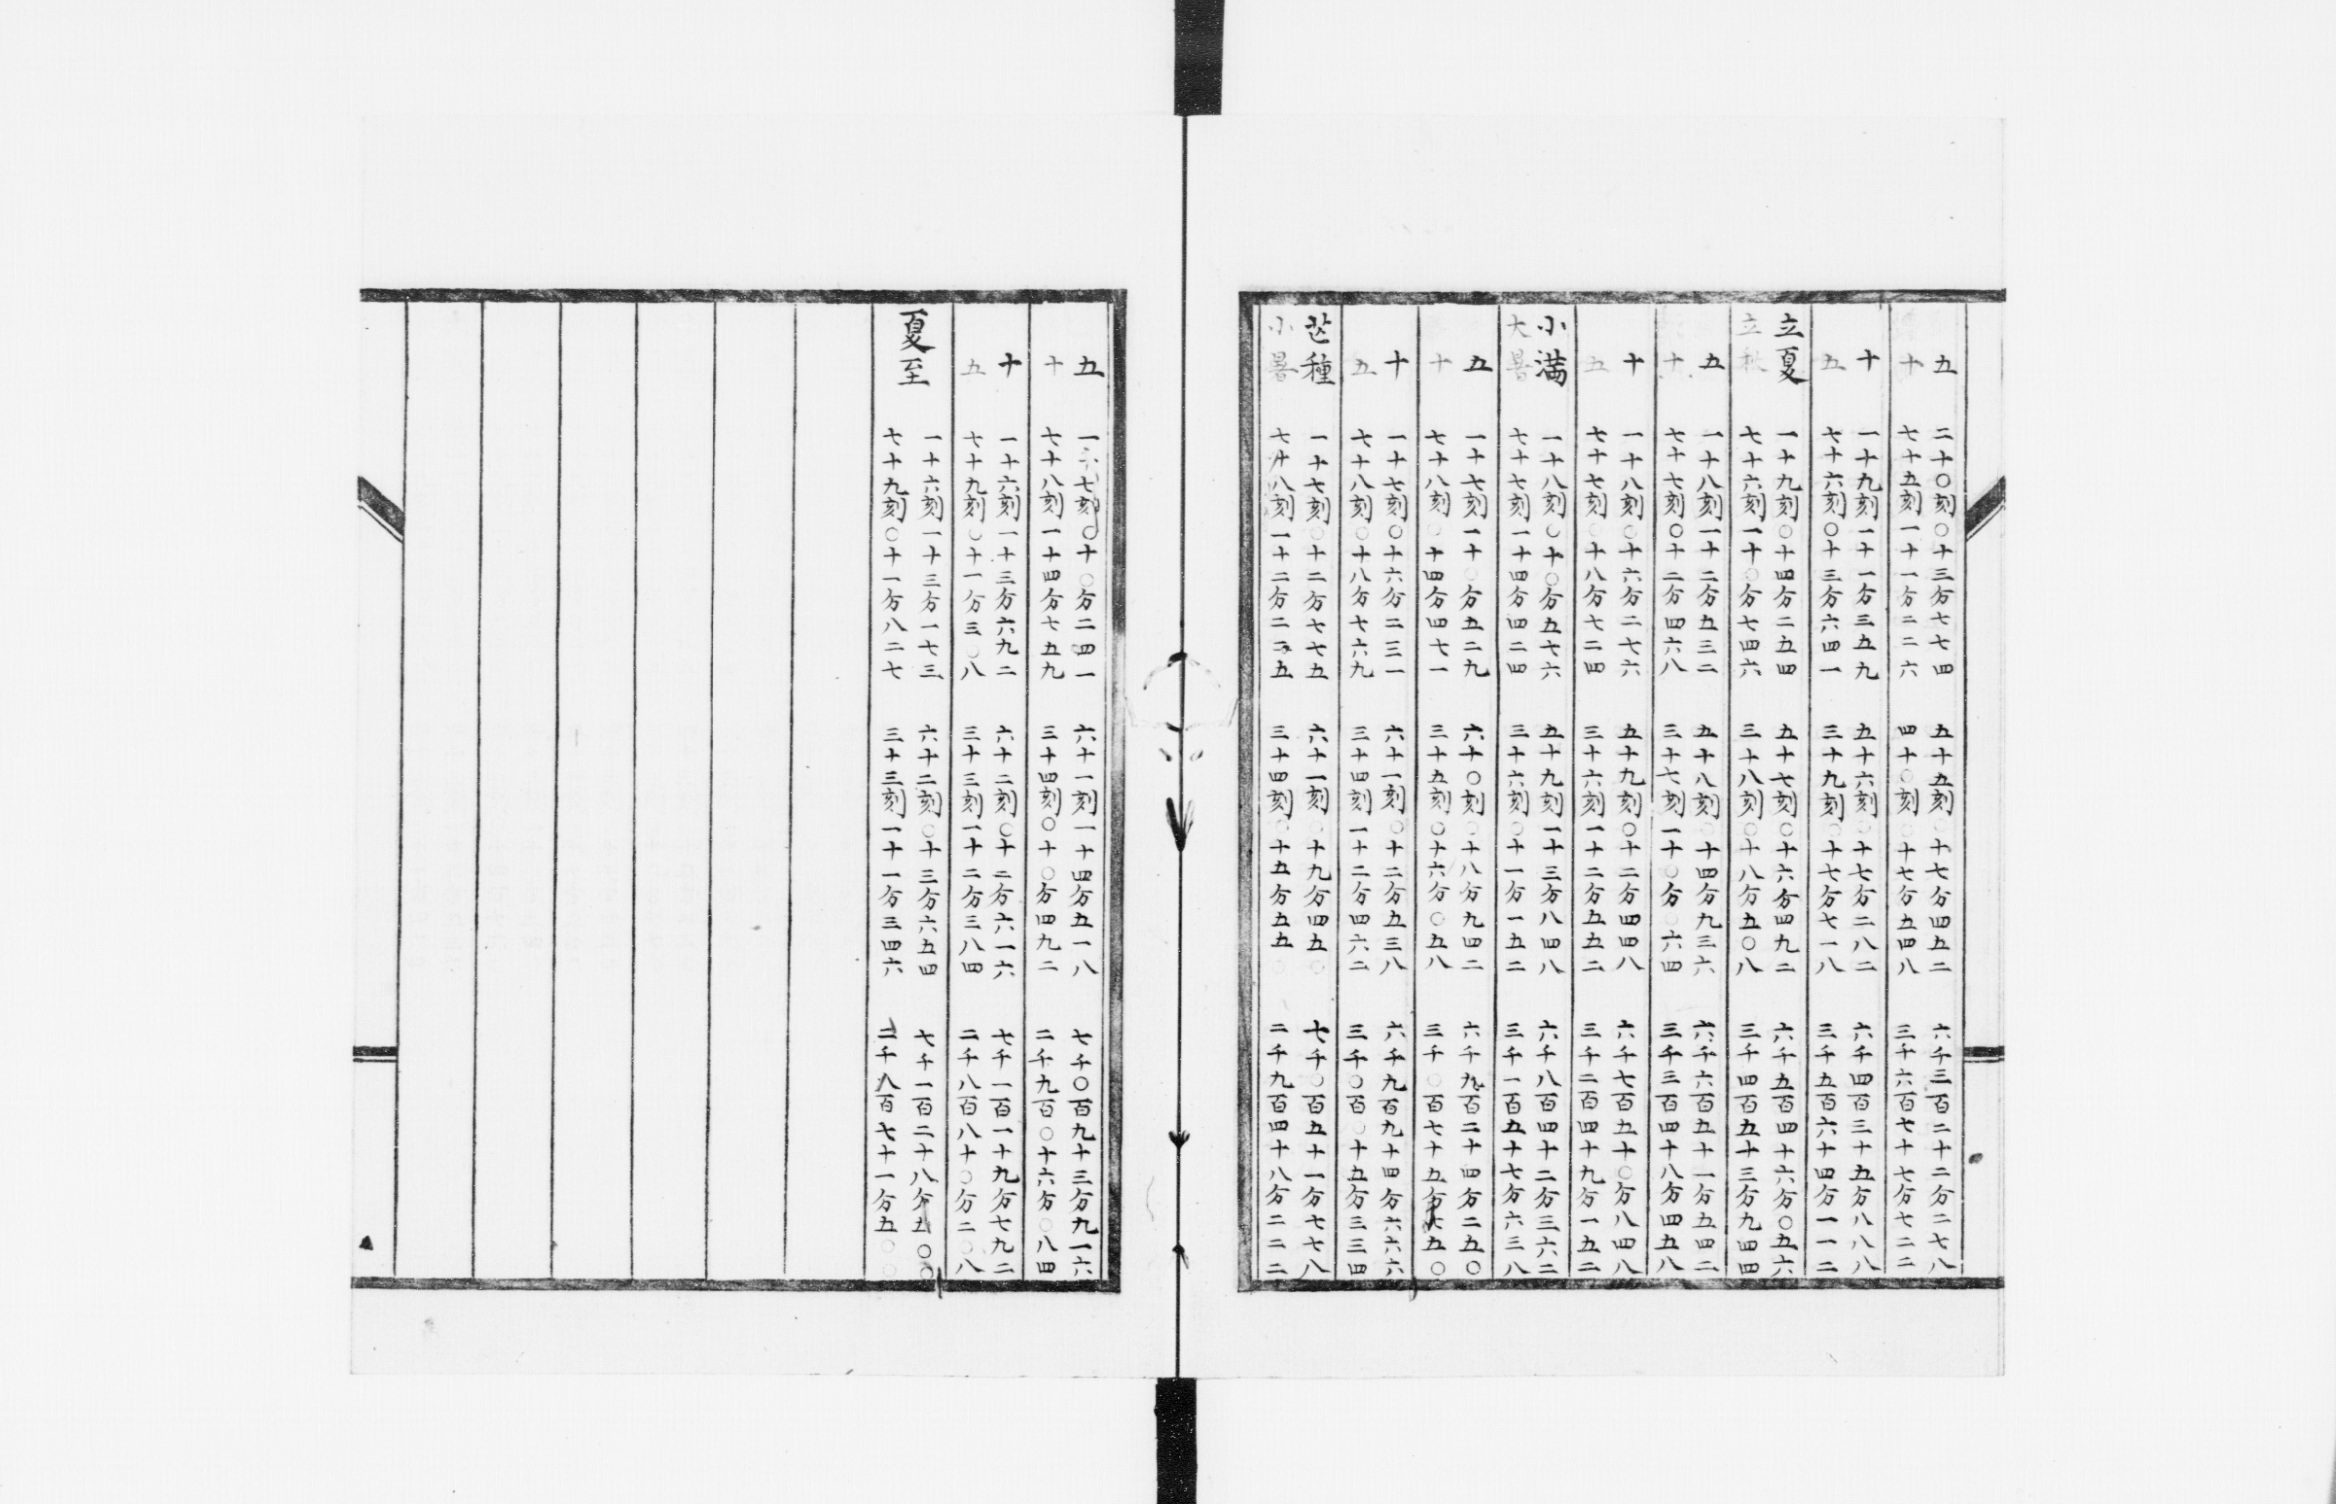 五 二十〇刻〇十三分七七四 五十五刻〇十七分四五二 六千三百二十二分二七八
十 七十五刻一十一分二二六 四十〇刻〇十七分五四八 三千六百七十七分七二二
十 一十九刻一十一分三五九 五十六刻〇十七分二八二 六千四百三十五分八八八
五 七十六刻〇十三分六四一 三十九刻〇十七分七一八 三千五百六十四分一一二
立夏 一十九刻〇十四分二五四 五十七刻〇十六分四九二 六千五百四十六分〇五六
立秋 七十六刻一十〇分七四六 三十八刻〇十八分五〇八 三千四百五十三分九四四
五 一十八刻一十二分五三二 五十八刻〇十四分九三六 六千六百五十一分五四二
十 七十七刻〇十二分四六八 三十七刻一十〇分〇六四 三千三百四十八分四五八
十 一十八刻〇十六分二七六 五十九刻〇十二分四四八 六千七百五十〇分八四八
五 七十七刻〇十八分七二四 三十六刻一十二分五五二 三千二百四十九分一五二
小満 一十八刻〇十〇分五七六 五十九刻一十三分八四八 六千八百四十二分三六二
大暑 七十七刻一十四分四二四 三十六刻〇十一分一五二 三千一百五十七分六三八
五 一十七刻一十〇分五二九 六十〇刻〇十八分九四二 六千九百二十四分二五〇
十 七十八刻〇十四分四七一 三十五刻〇十六分〇五八 三千〇百七十五分七五〇
十 一十七刻〇十六分二三一 六十一刻〇十二分五三八 六千九百九十四分六六六
五 七十八刻〇十八分七六九 三十四刻一十二分四六二 三千〇百〇十五分三三四
芒種 一十七刻〇十二分七七五 六十一刻〇十九分四五〇 七千〇百五十一分七七八
小暑 七十八刻一十二分二二五 三十四刻〇十五分五五〇 二千九百四十八分二二二
五 一十七刻〇十〇分二四一 六十一刻一十四分五一八 七千〇百九十三分九一六
十 七十八刻一十四分七五九 三十四刻〇十〇分四九二 二千九百〇十六分〇八四
十 一十六刻一十三分六九二 六十二刻〇十二分六一六 七千一百一十九分七九二
五 七十九刻〇十一分三〇八 三十三刻一十二分三八四 二千八百八十〇分二〇八
夏至 一十六刻一十三分一七三 六十二刻〇十三分六五四 七千一百二十八分五〇〇
七十九刻〇十一分八二七 三十三刻一十一分三四六 二千八百七十一分五〇〇